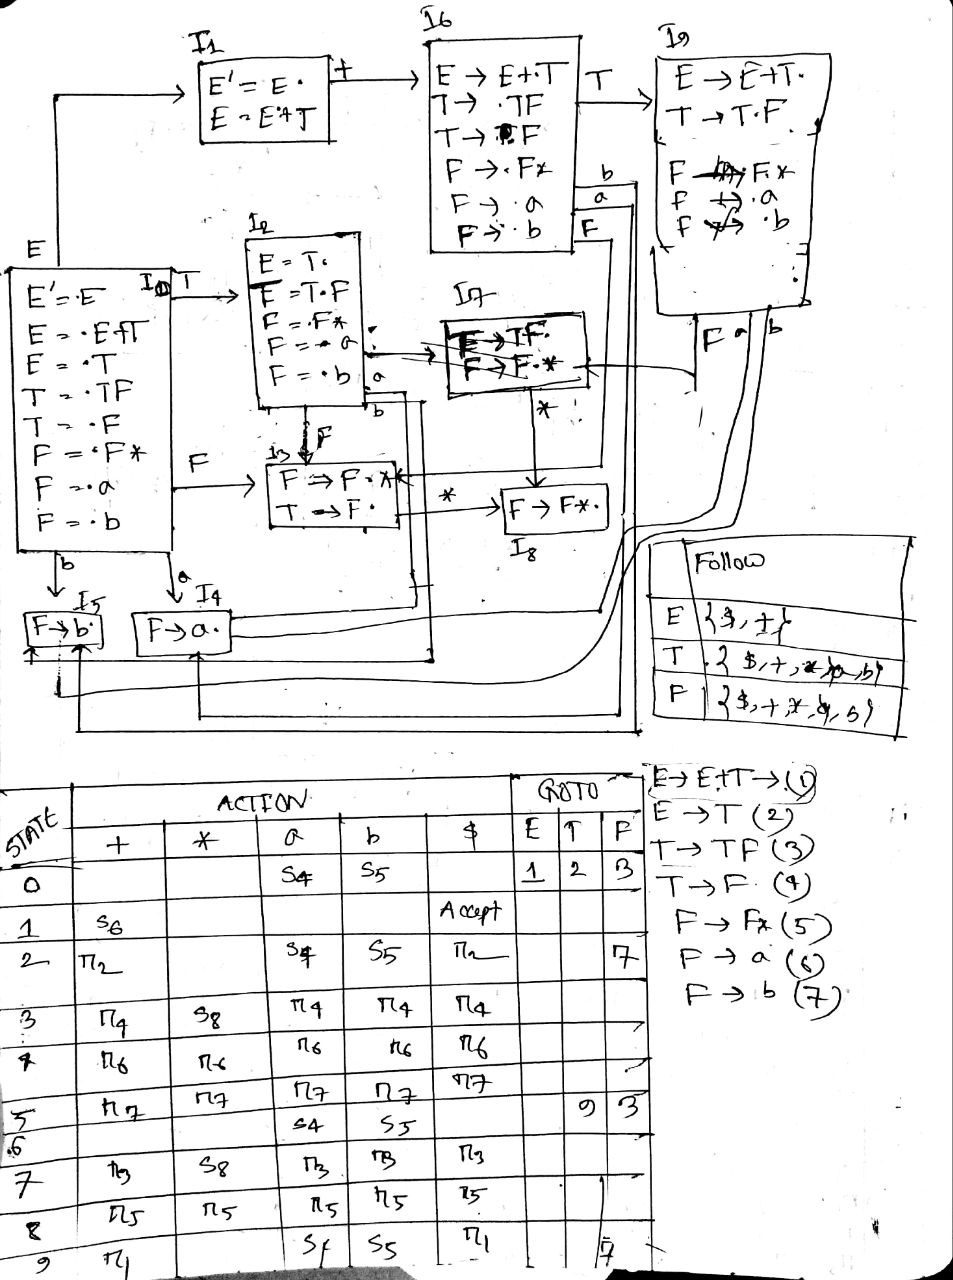 I1
E' = E·
E = E·+T
+
I6
E → E+·T
T → ·TF
T → ·F
F → ·F*
F → ·a
F → ·b
T
b
a
F
I9
E → E+T·
T → T·F
F → ·F*
F → ·a
F → ·b
F
a
b
E
I0
E' = ·E
E = ·E+T
E = ·T
T = ·TF
T = ·F
F = ·F*
F = ·a
F = ·b
T
F
b
a
I2
E = T·
T = T·F
F = ·F*
F = ·a
F = ·b
a
b
F
I7
T → TF·
F → F·*
*
I3
F → F·*
T → F·
*
F → F*·
I8
I5
F → b·
I4
F → a·
Follow
E {$, +}
T { $, +, *, a, b}
F {$, +, *, a, b}
STATE ACTION GOTO
+ * a b $ E T F
0 S4 S5 1 2 3
1 S6 Accept
2 r2 S4 S5 r2 7
3 r4 S8 r4 r4 r4
4 r6 r6 r6 r6 r6
5 r7 r7 r7 r7 r7
6 S4 S5 9 3
7 r3 S8 r3 r3 r3
8 r5 r5 r5 r5 r5
9 r1 S4 S5 r1 7
E → E+T → (1)
E → T (2)
T → TF (3)
T → F· (4)
F → F* (5)
F → a (6)
F → b (7)